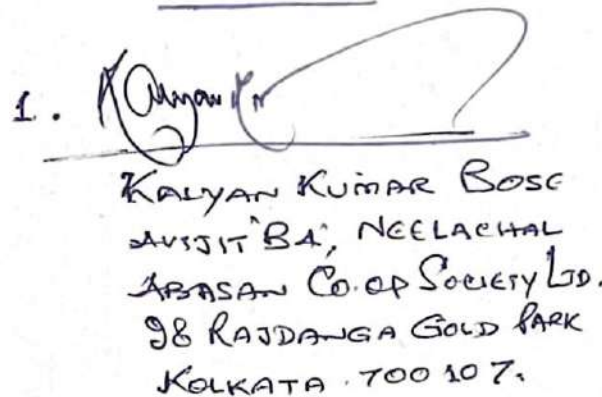 1. Kalyan Kr
KALYAN KUMAR BOSE
AVIJIT "BA", NEELACHAL
ABASAN CO. OP SOCIETY LTD.
98 RAJDANGA GOLD PARK
KOLKATA . 700 107.